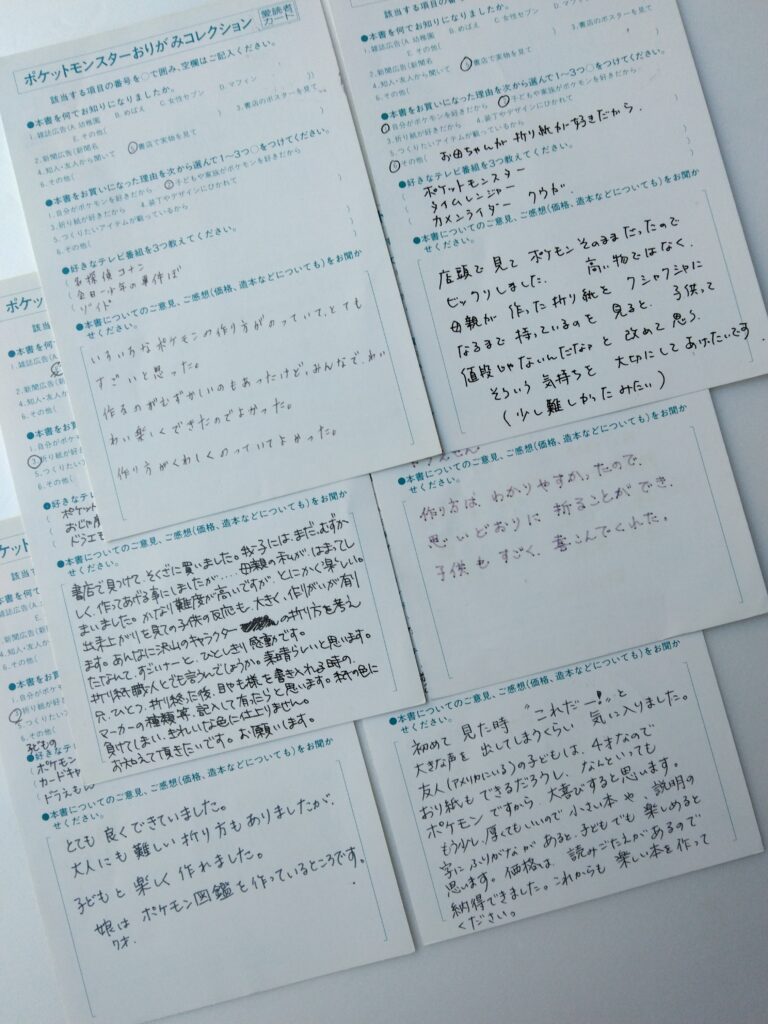 ポケットモンスターおりがみコレクション
愛読者カード
該当する項目の番号を○で囲み、空欄はご記入ください。
●本書を何でお知りになりましたか。
1.雑誌広告(A.幼稚園 B.めばえ C.女性セブン D.マフィン
E.その他( )
2.新聞広告(新聞名 ) 3.書店のポスターを見て
4.知人・友人から聞いて ⑤書店で実物を見て
6.その他( )
●本書をお買いになった理由を次から選んで1～3つ○をつけてください。
1.自分がポケモンを好きだから ②子どもや家族がポケモンを好きだから
3.折り紙が好きだから 4.装丁やデザインにひかれて
5.つくりたいアイテムが載っているから
6.その他( )
●好きなテレビ番組を3つ教えてください。
名探偵コナン
金田一少年の事件ぼ
ゾイド
●本書についてのご意見、ご感想(価格、造本などについても)をお聞かせください。
いろいろなポケモンの作り方がのっていて、とても
すごいと思った。
作るのがむずかしいのもあったけど、みんなで、わい
わい楽しくできたのでよかった。
作り方がくわしくのっていてよかった。
該当する項目の番号を○で囲み、空欄はご記入ください。
●本書を何でお知りになりましたか。
1.雑誌広告(A.幼稚園 B.めばえ C.女性セブン D.マフィン
E.その他(
2.新聞広告(新聞名 3.書店のポスターを見て
4.知人・友人から聞いて ⑤書店で実物を見て
6.その他(
●本書をお買いになった理由を次から選んで1～3つ○をつけてください。
①自分がポケモンを好きだから ②子どもや家族がポケモンを好きだから
3.折り紙が好きだから 4.装丁やデザインにひかれて
5.つくりたいアイテムが載っているから
⑥その他( お母ちゃんが折り紙が好きだから )
●好きなテレビ番組を3つ教えてください。
ポケットモンスター
タイムレンジャー
カメンライダー クウガ
●本書についてのご意見、ご感想(価格、造本などについても)をお聞かせください。
店頭で見て ポケモンそのままだったので
ビックリしました。 高い物ではなく、
母親が作った折り紙を クシャクシャに
なるまで持っているのを見ると、子供って
値段じゃないんだなぁと改めて思う。
そういう気持ちを 大切にしてあげたいです
(少し難しかったみたい)
●本書についてのご意見、ご感想(価格、造本などについても)をお聞かせください。
書店で見つけて、そくざに買いました。我子には、まだ、むずか
しく、作ってあげる事にしましたが‥‥母親の私が、はまってし
まいました。かなり難度が高いですが、とにかく楽しい。
出来上がりを見ての子供の反応も、大きく、作りがいが有り
ます。あんなに沢山のキャラクターの折り方を考え
たなんて、すごいナーと、ひとしきり感動です。
折り紙職人とでも言うんでしょうか。素晴らしいと思います。
只、ひとつ、折り終えた後、目やも様を書き入れる時の、
マーカーの種類等、記入して有たらと思います。紙の色に
負けてしまい、きれいな色に仕上りません。
おしえて頂きたいです。お願いします。
●本書についてのご意見、ご感想(価格、造本などについても)をお聞かせください。
作り方は、わかりやすかったので、
思いどおりに 折ることができ、
子供もすごく、喜こんでくれた。
●本書についてのご意見、ご感想(価格、造本などについても)をお聞かせください。
とても 良くできていました。
大人にも難しい折り方もありましたが、
子どもと楽しく作れました。
娘は、ポケモン図鑑を作っているところです。
7才.
●本書についてのご意見、ご感想(価格、造本などについても)をお聞かせください。
初めて 見た時 “これだー!”と
大きな声を 出してしまうくらい 気に入りました。
友人(アメリカにいる)の子どもは、4才なので
おり紙もできるだろうし、なんといっても
ポケモン ですから、大喜びすると思います。
もう少し、厚くてもいいので 小さい本や、説明の
字に ふりがながあると、子どもでも 楽しめると
思います。価格は、読みごたえがあるので
納得できました。これからも 楽しい本を作って
ください。